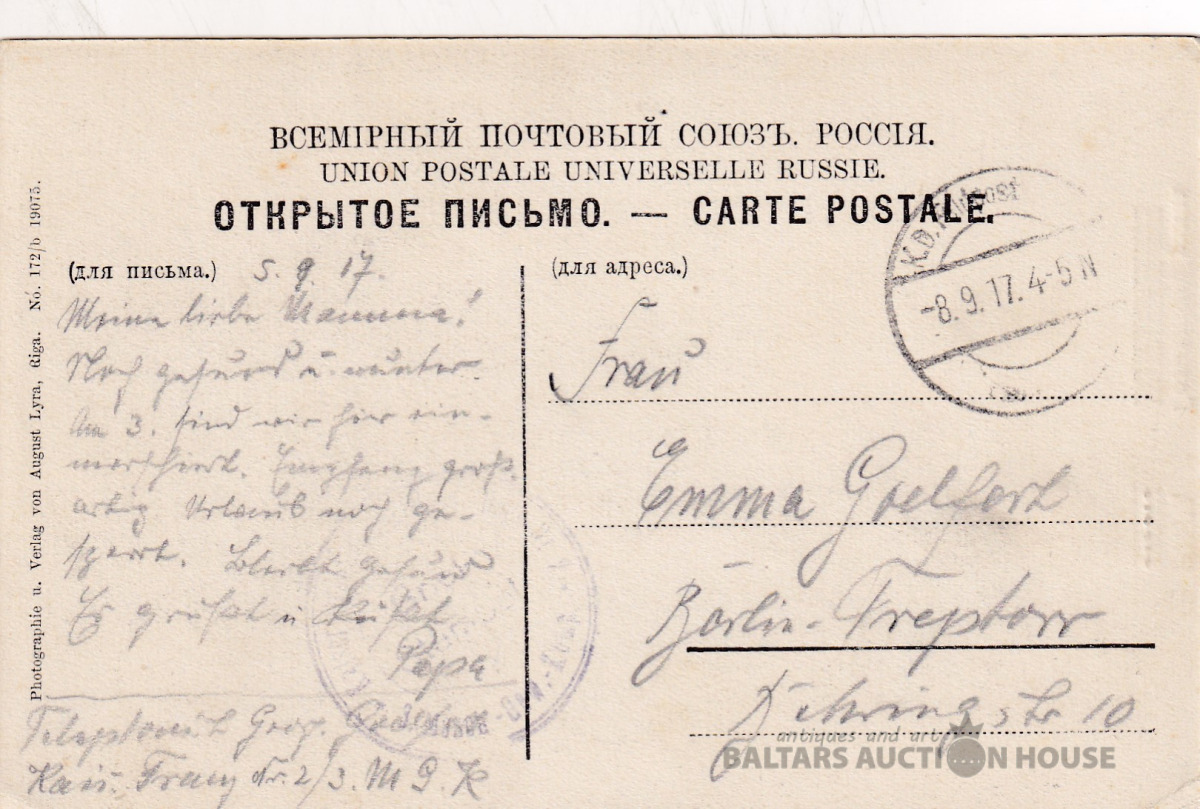 ВСЕМІРНЫЙ ПОЧТОВЫЙ СОЮЗЪ. РОССІЯ.
UNION POSTALE UNIVERSELLE RUSSIE.
ОТКРЫТОЕ ПИСЬМО. — CARTE POSTALE.
(для письма.)
5. 9. 17.
Meine liebe Mamma!
Noch gesund u. munter.
Am 3. sind wir hier ein-
marschiert. Empfang groß-
artig Urlaub noch ge-
sperrt. Bleibt gesund
Es grüßt u. küßt
Papa
Telephonist Grog.
Kais. Franz Nr. 2/3. M G K
(для адреса.)
Frau
Emma
Berlin-Treptow
str 10
K.D. Feldpost
-8.9.17. 4-5 N
Photographie u. Verlag von August Lyra, Riga. No. 172/b 19075.
antiques and art
BALTARS AUCTION HOUSE